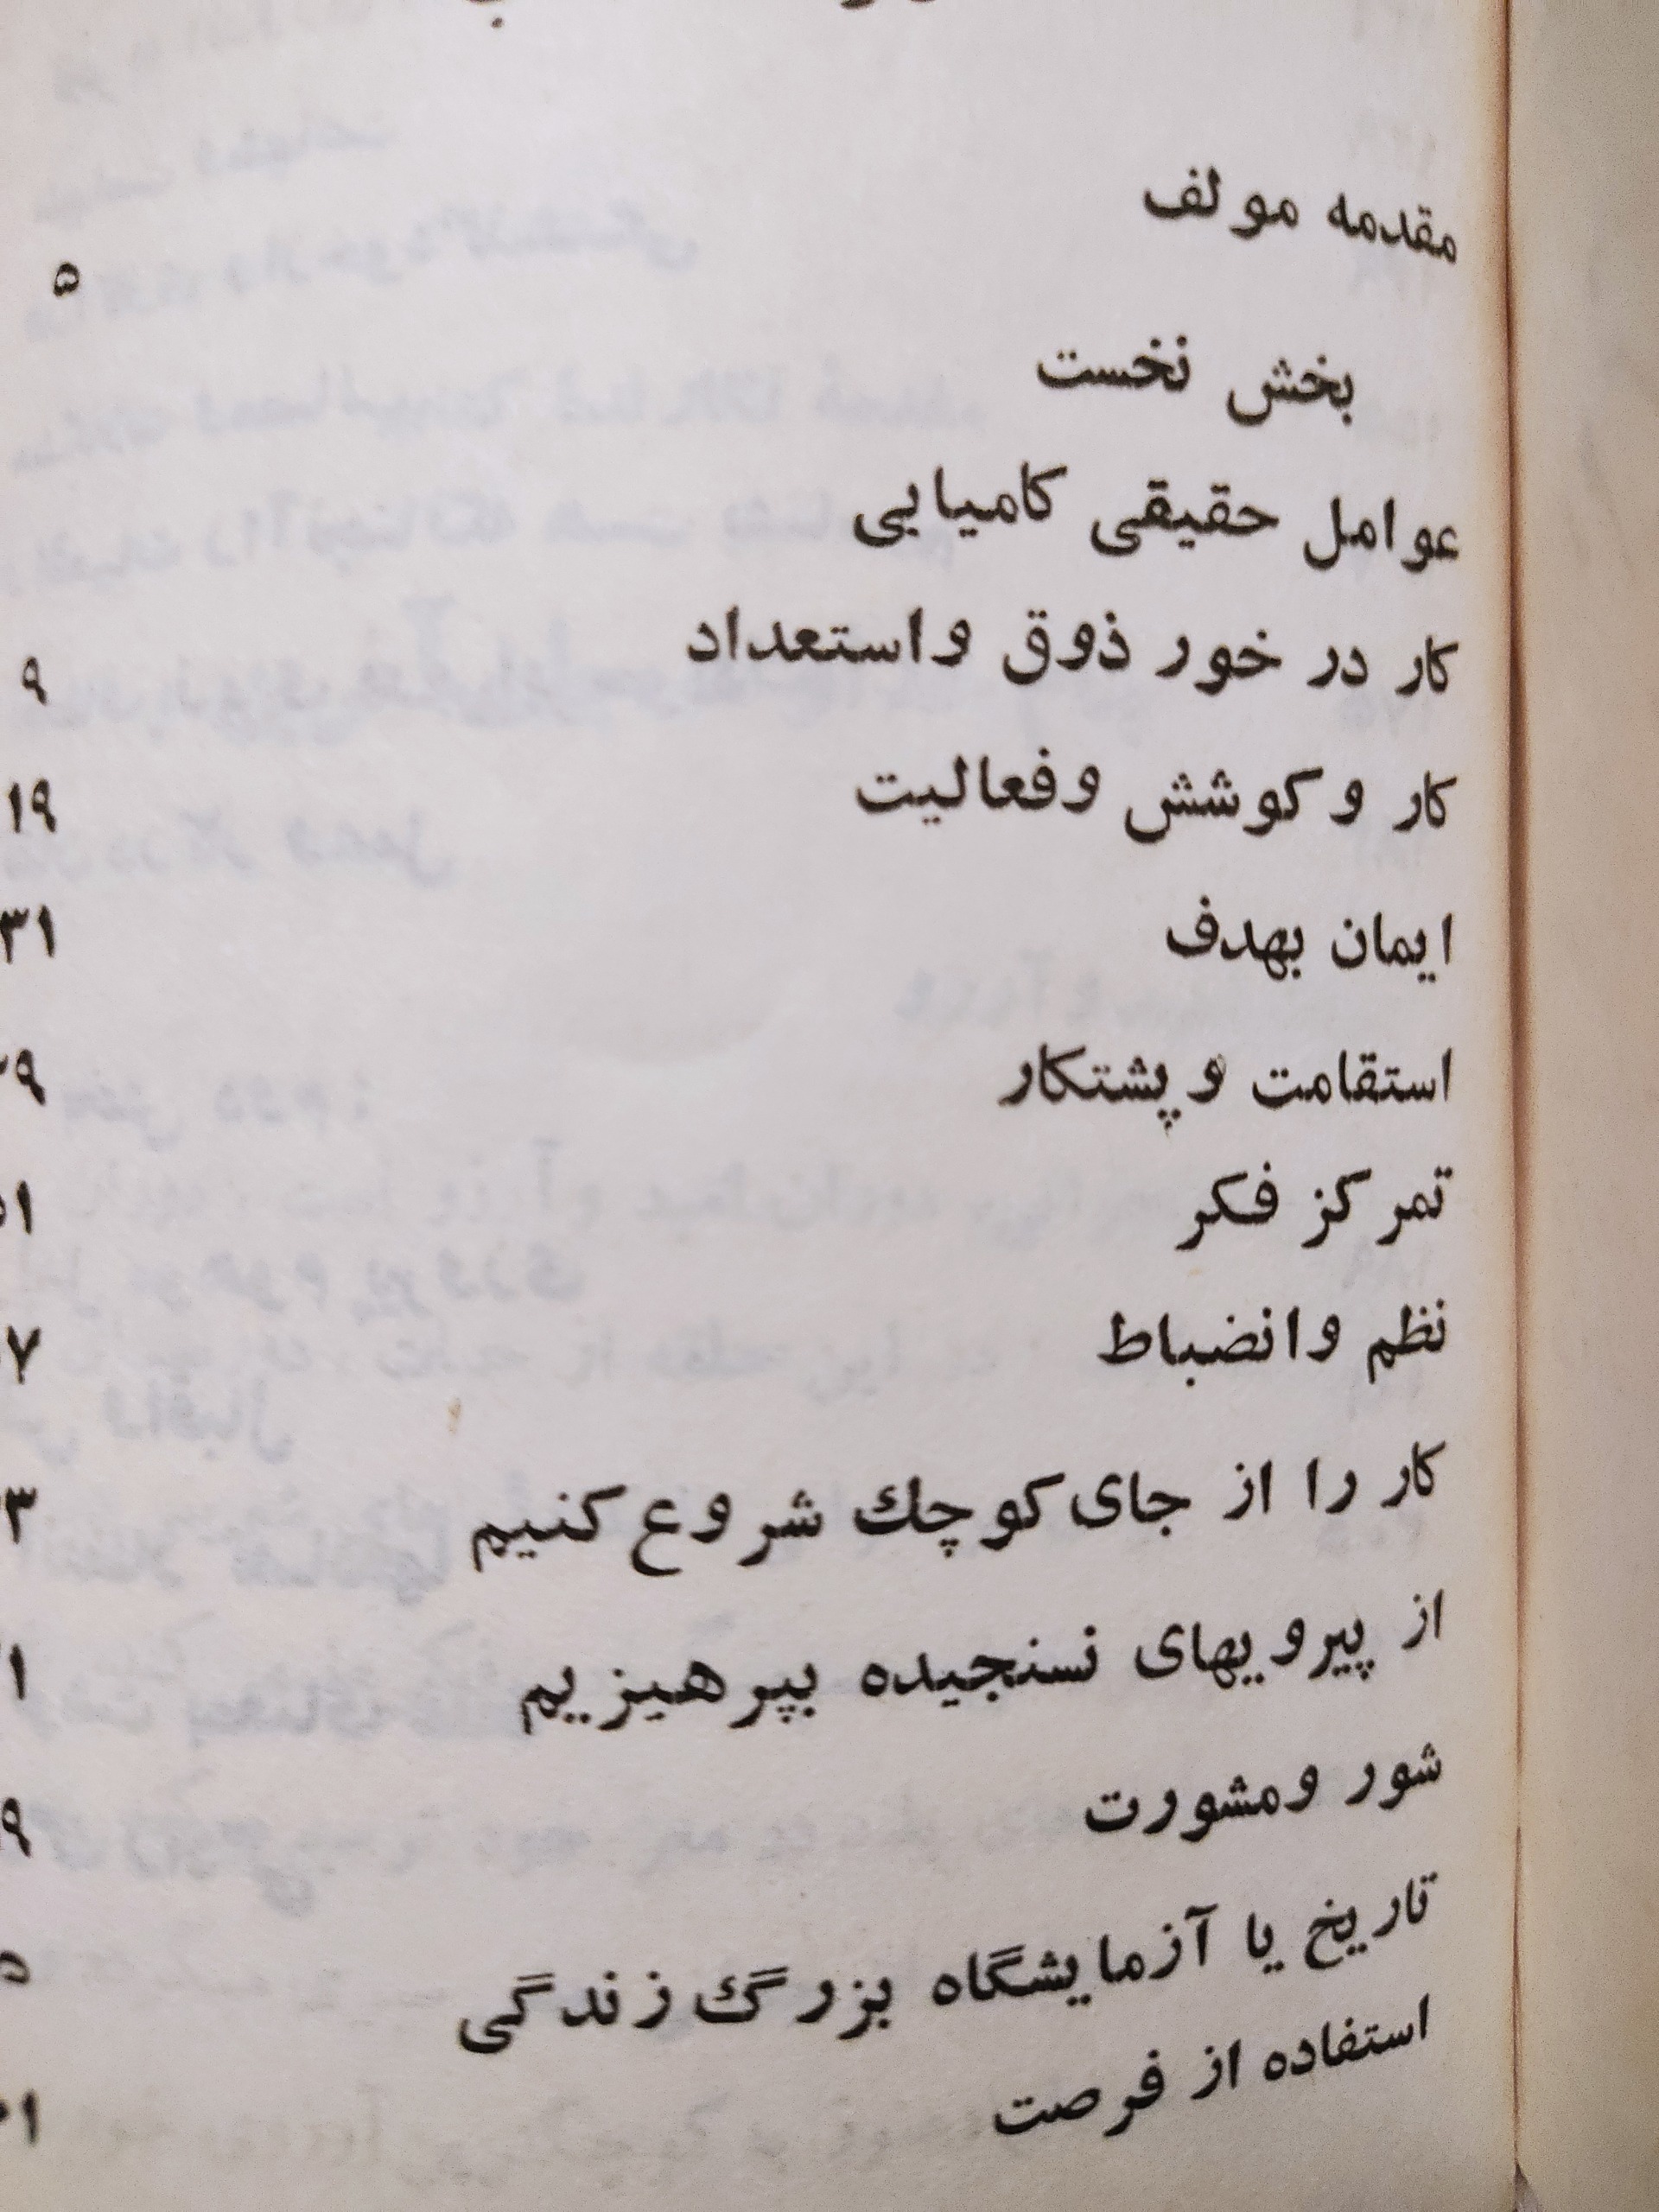 مقدمه مولف ۵
بخش نخست
عوامل حقیقی کامیابی
کار در خور ذوق واستعداد ۹
کار و کوشش وفعالیت ۱۹
ایمان بهدف ۳۱
استقامت و پشتکار
تمرکز فکر
نظم وانضباط
کار را از جای کوچك شروع کنیم
از پیرویهای نسنجیده بپرهیزیم
شور ومشورت
تاریخ یا آزمایشگاه بزرگ زندگی
استفاده از فرصت